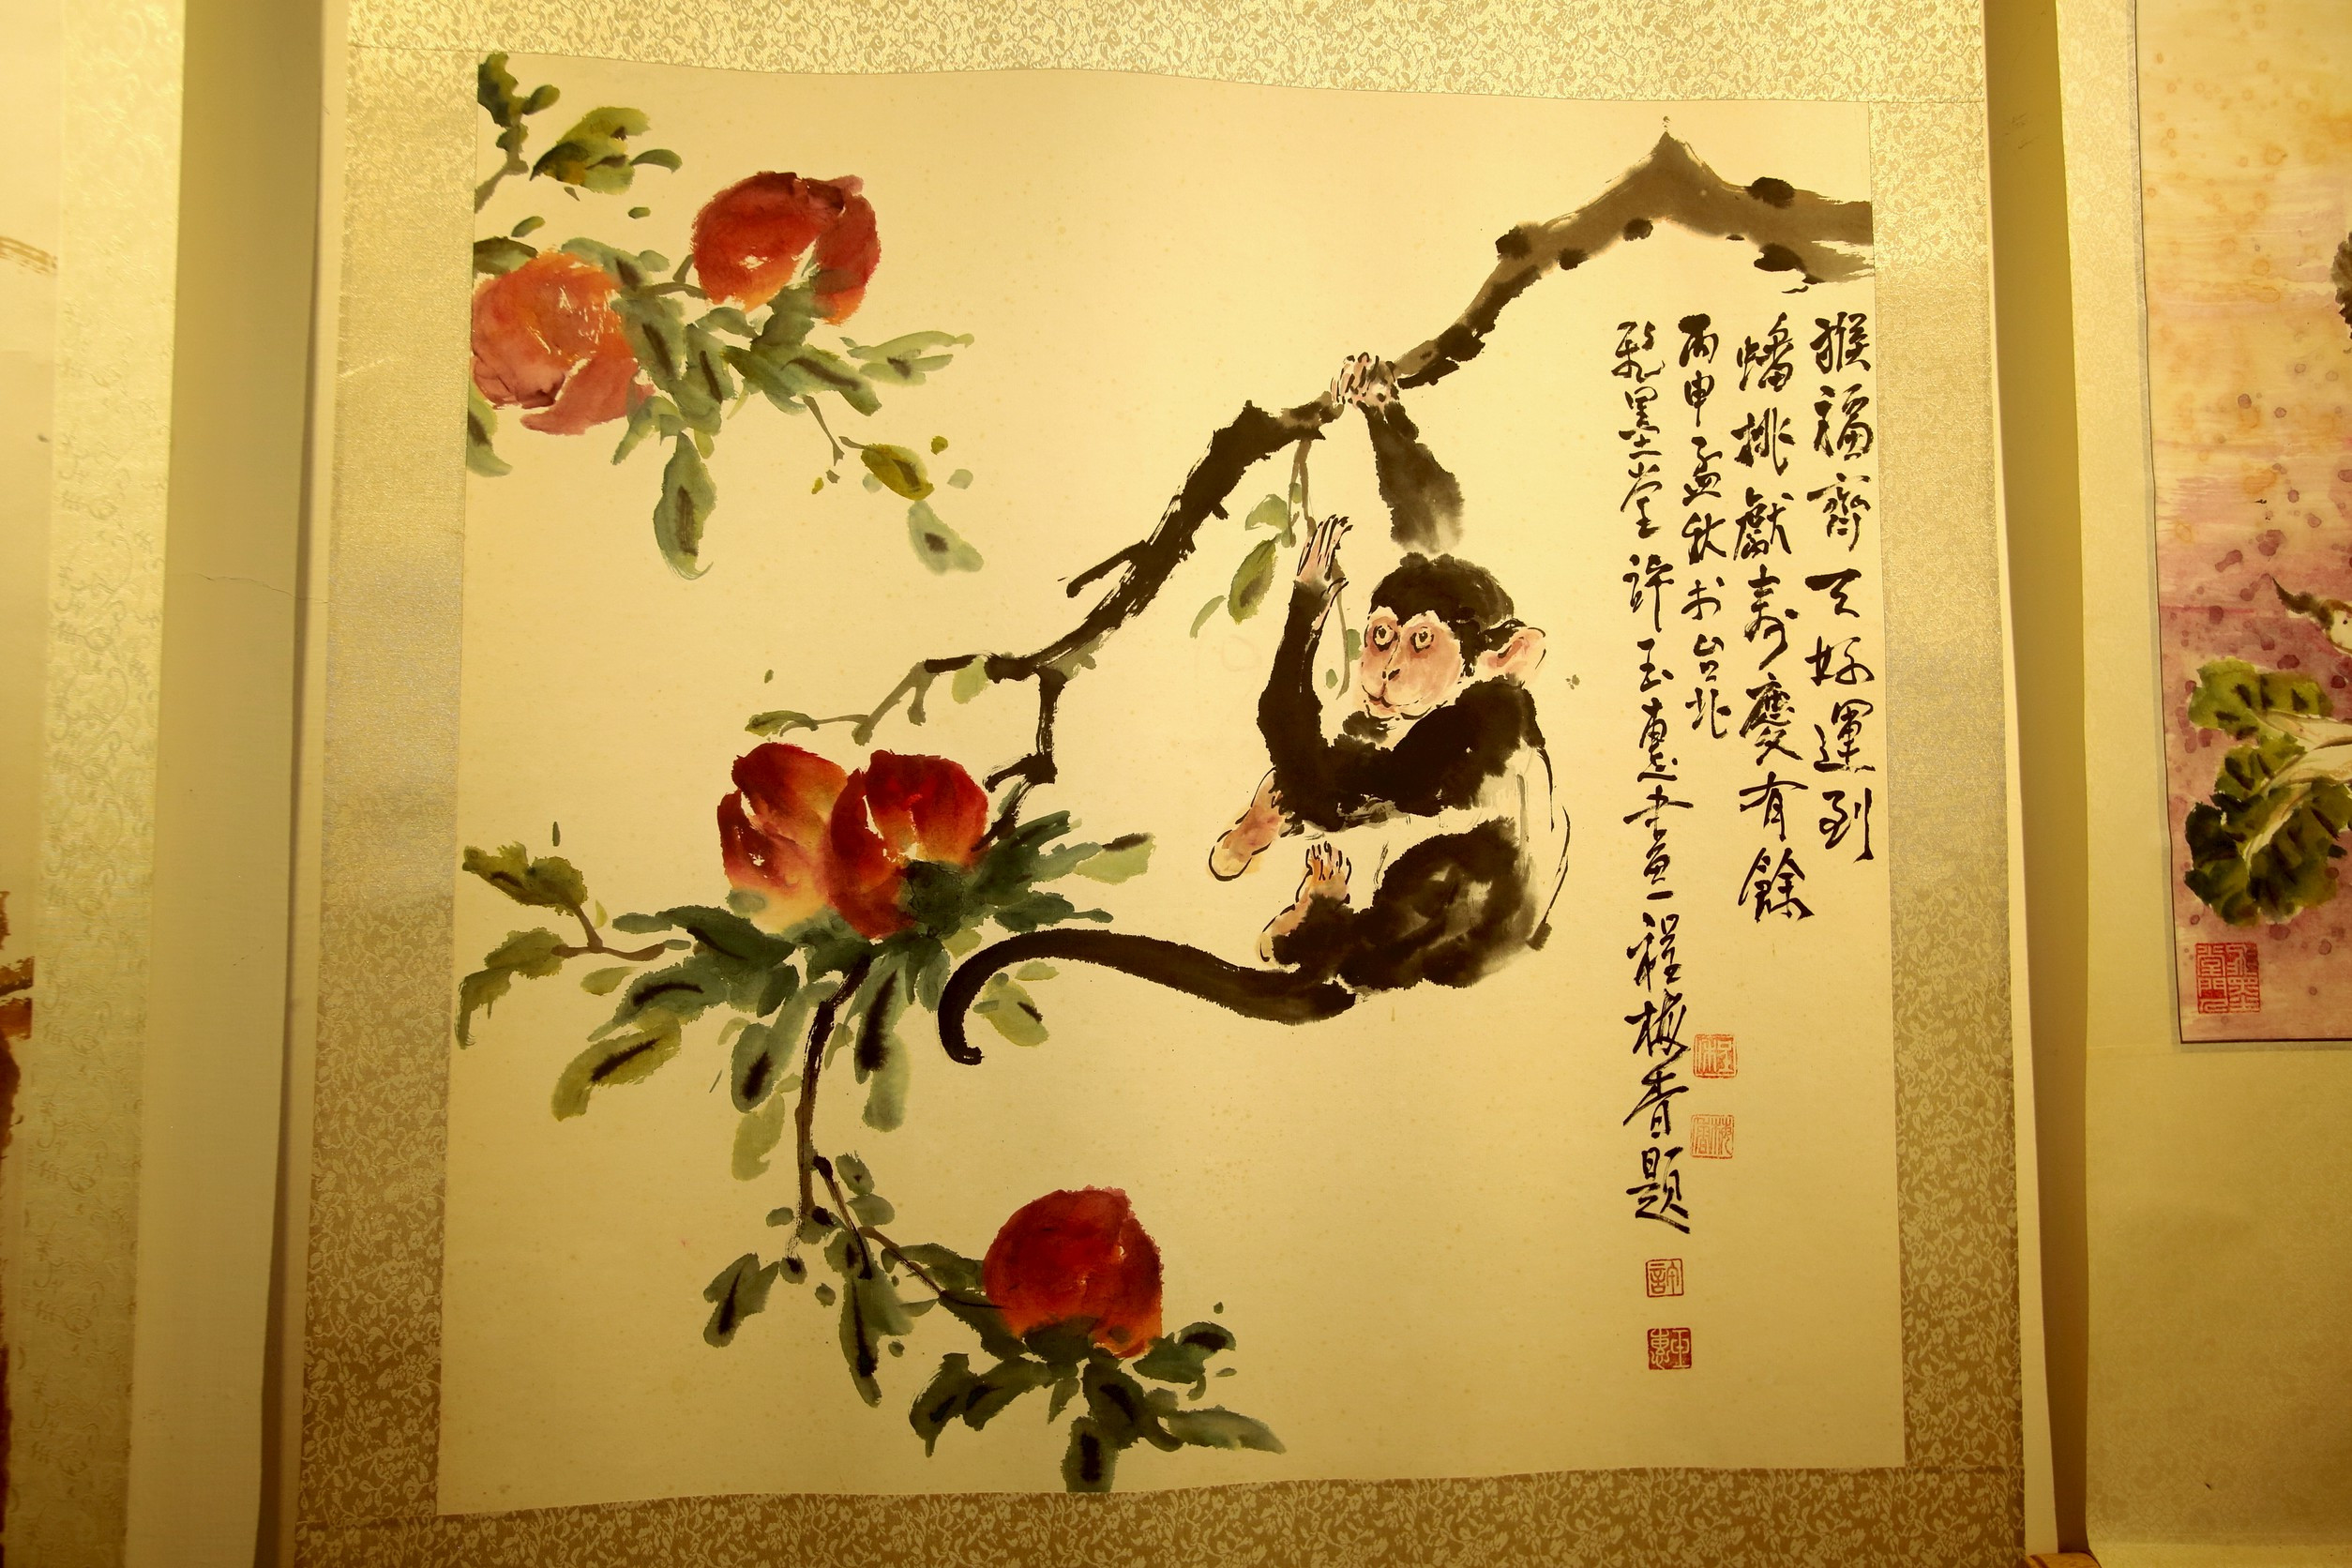 猴福齊天好運到
蟠桃獻壽慶有餘
丙申孟秋於台北
乾墨堂許玉惠書畫程梅香題
許
玉惠